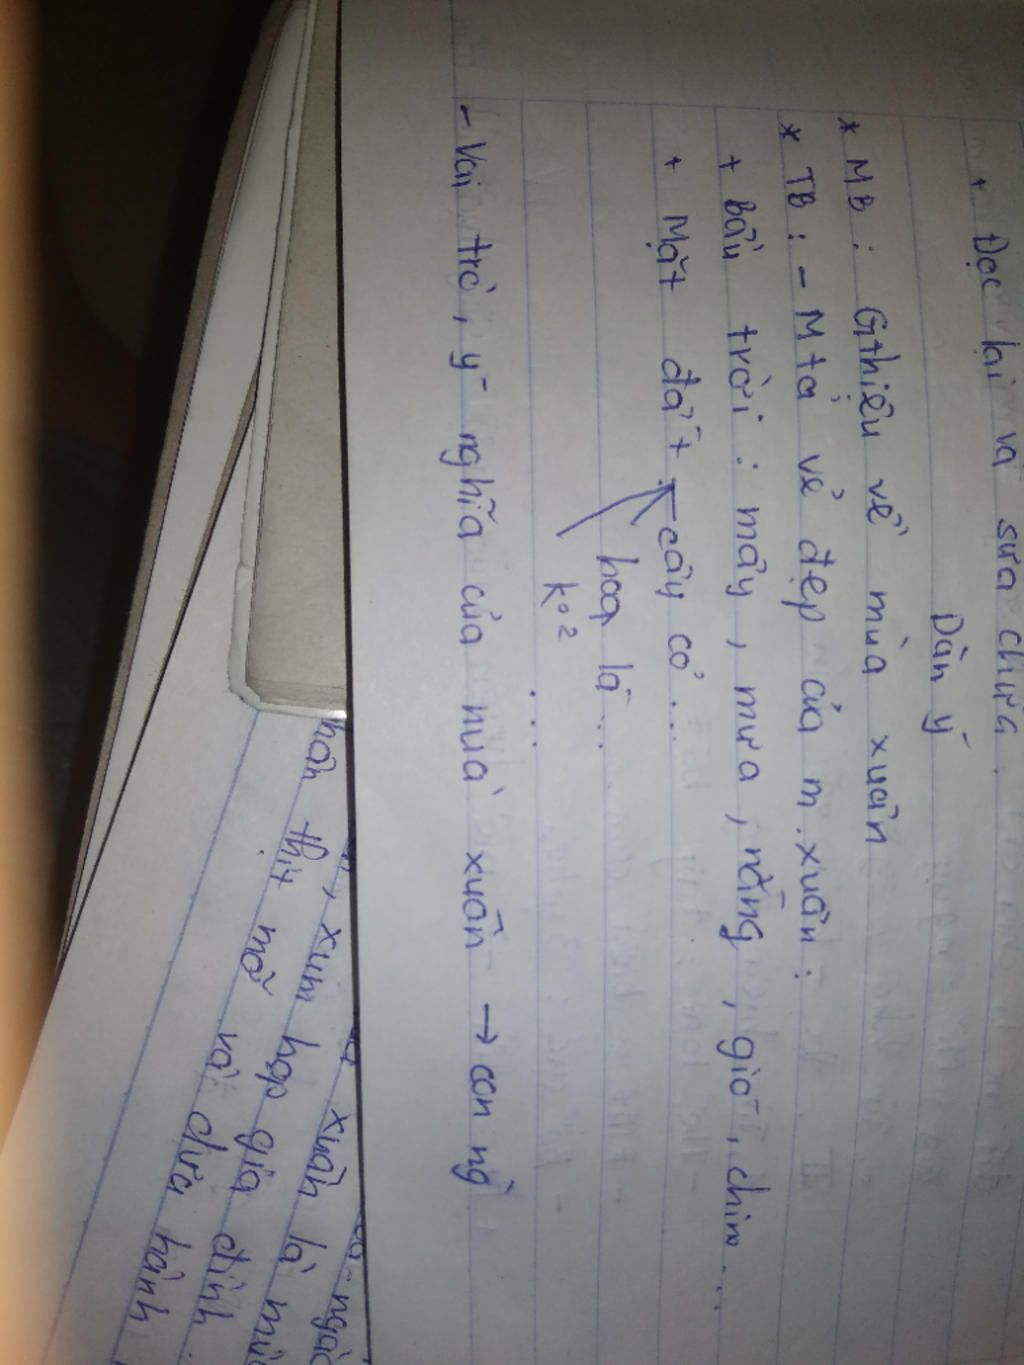 + Đọc lại và sửa chữa.
Dàn ý
* MB : Gthiệu về mùa xuân
* TB : - M tả vẻ đẹp của m.xuân :
+ Bầu trời : mây, mưa, nắng, gió, chim...
+ Mặt đất cây cỏ...
hoa lá...
k²
...
- Vai trò, ý nghĩa của mùa xuân → con ng`
xuân là
xum họp gia đình.
thịt mỡ và dưa hành